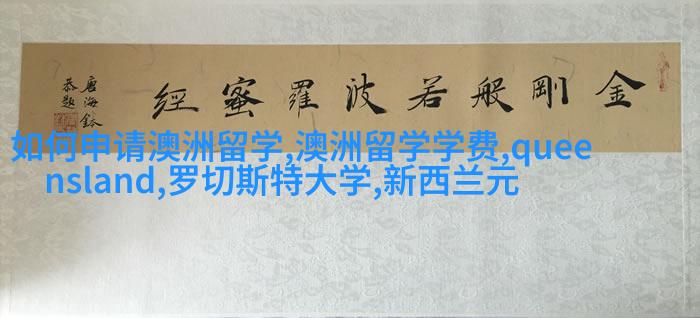 金剛般若波羅蜜經
唐海
恭題
如何申请澳洲留学,澳洲留学学费,quee
nsland,罗切斯特大学,新西兰元